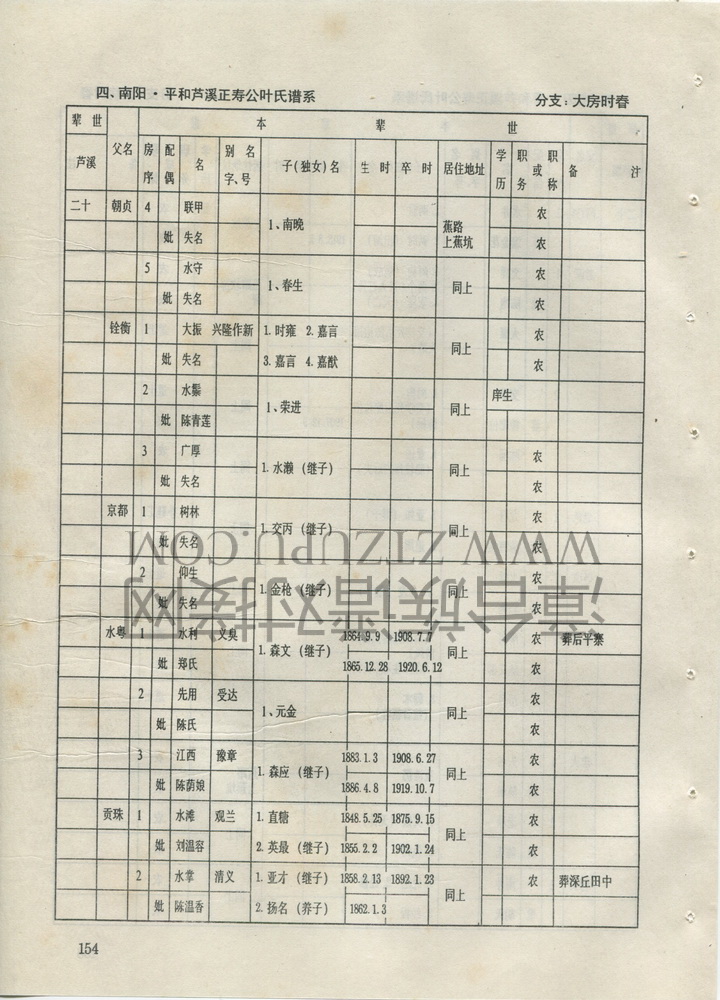 四、南阳·平和芦溪正寿公叶氏谱系 分支：大房时春
辈世 本 辈 世
芦溪 父名 房序 配偶 名 别名字、号 子(独女)名 生时 卒时 居住地址 学历 职务或职称 备注
二十 朝贞 4 联甲 1、南晚 蕉路上蕉坑 农
妣 失名 农
5 水守 1、春生 同上 农
妣 失名 农
铨衡 1 大振 兴隆作新 1. 时雍 2. 嘉言 同上 农
妣 失名 3. 嘉言 4. 嘉猷 农
2 水 1、荣进 同上 庠生
妣 陈青莲
3 广厚 1. 水濑（继子） 同上 农
妣 失名 农
京都 1 树林 1. 交丙（继子） 同上 农
妣 失名 农
2 仰生 1. 金枪（继子） 同上 农
妣 失名 农
水粤 1 水利 文臭 1. 森文（继子） 1864.9.9 1908.7.7 同上 农 葬后平寨
妣 郑氏 1865.12.28 1920.6.12 农
2 先用 受达 1、元金 同上 农
妣 陈氏 农
3 江西 豫章 1. 森应（继子） 1883.1.3 1908.6.27 同上 农
妣 陈荫娘 1886.4.8 1919.10.7 农
贡珠 1 水滩 观兰 1. 直糖 1848.5.25 1875.9.15 同上 农
妣 刘温容 2. 英最（继子） 1855.2.2 1902.1.24 农
2 水 清义 1. 亚才（继子） 1858.2.13 1892.1.23 同上 农 葬深丘田中
妣 陈温香 2. 扬名（养子） 1862.1.3
154
漳台族谱对接网
WWW.ZTZUPU.COM